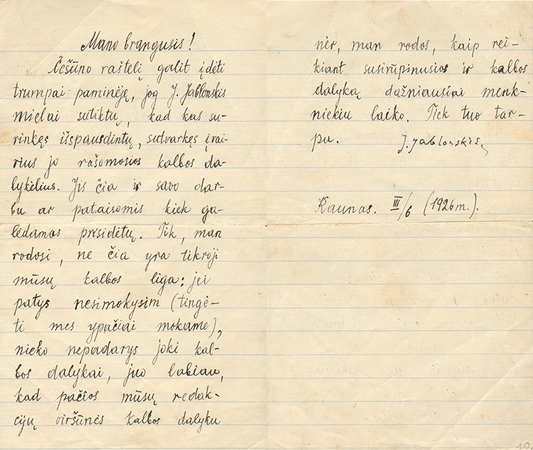 Mano brangusis!
Čėsūno raštelį galit įdėti
trumpai paminėję, jog J. Jablonskis
mielai sutiktų, kad kas su-
rinkęs išspausdintų, sutvarkęs įvai-
rius jo rašomosios kalbos da-
lykėlius. Jis čia ir savo dar-
bu ar pataisomis kiek ga-
lėdamas prisidėtų. Tik, man
rodosi, ne čia yra tikroji
mūsų kalbos liga: jei
patys nesimokysim (tingė-
ti mes ypačiai mokame),
nieko nepadarys joki kal-
bos dalykai, juo labiau,
kad pačios mūsų redak-
cijų viršūnės kalbos dalyku
nėr, man rodos, kaip rei-
kiant susirūpinusios ir kalbos
dalyką dažniausiai menk-
niekiu laiko. Tiek tuo tar-
pu. J. Jablonskis
Kaunas. III/6 (1926 m.).